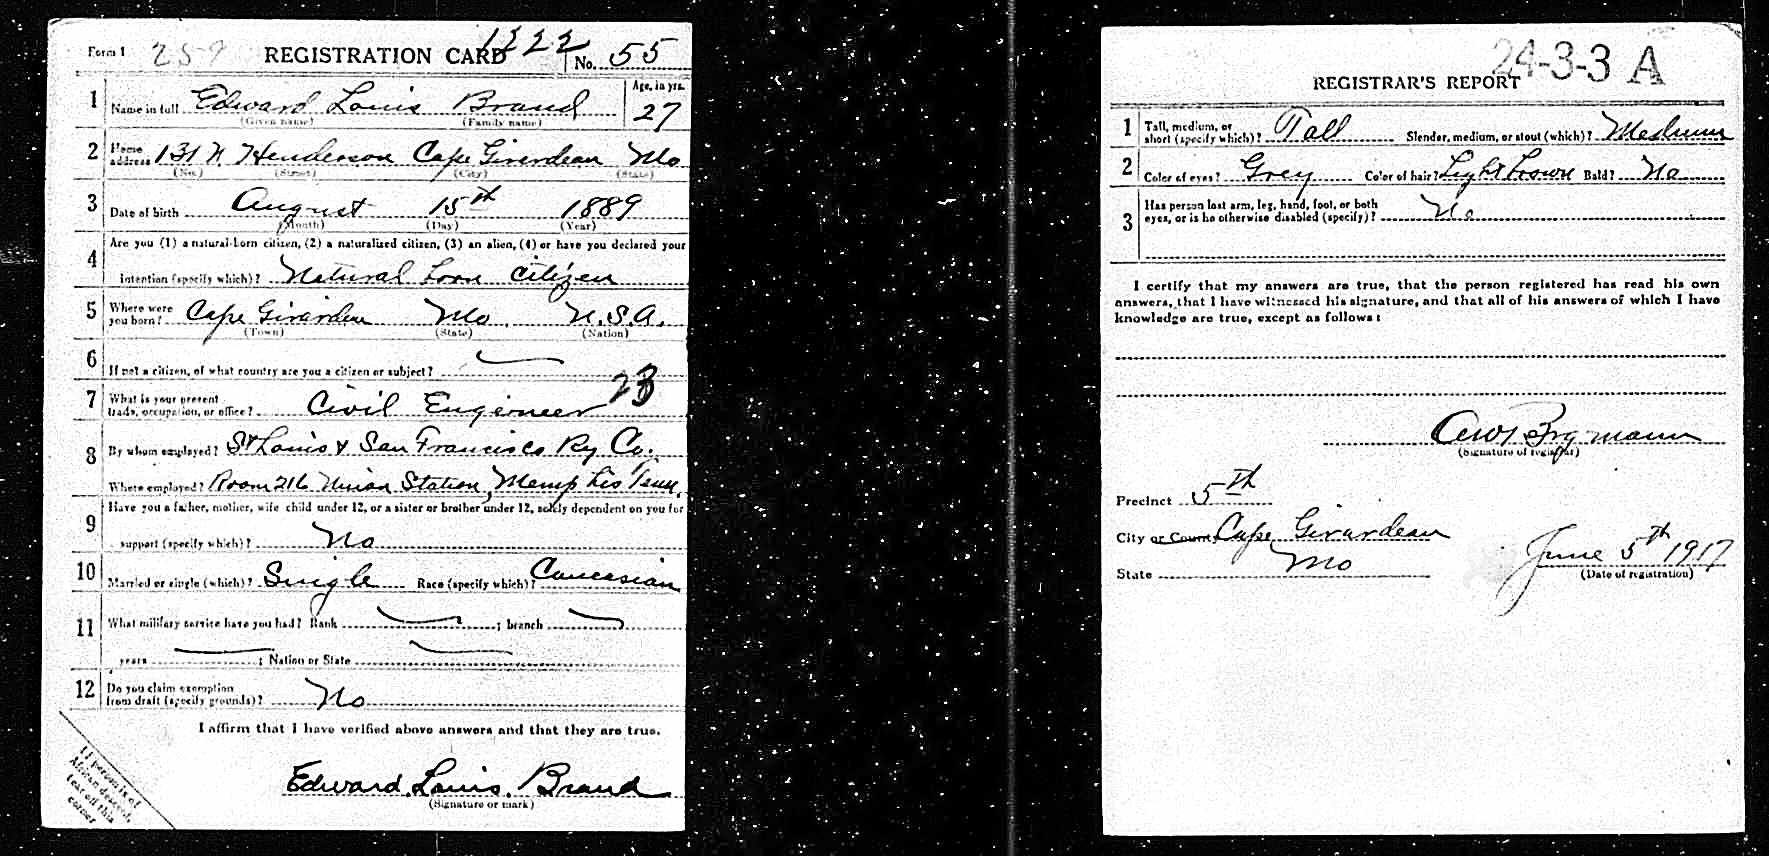 Form 1 259 REGISTRATION CARD 1222 No. 55
1 Name in full Edward Louis Brand Age, in yrs. 27
(Given name) (Family name)
2 Home address 131 N. Henderson Cape Girardeau Mo
(No.) (Street) (City) (State)
3 Date of birth August 15th 1889
(Month) (Day) (Year)
4 Are you (1) a natural-born citizen, (2) a naturalized citizen, (3) an alien, (4) or have you declared your
intention (specify which)? Natural born citizen
5 Where were you born? Cape Girardeau Mo. U.S.A.
(Town) (State) (Nation)
6 If not a citizen, of what country are you a citizen or subject?
23
7 What is your present trade, occupation, or office? Civil Engineer
8 By whom employed? St Louis & San Francisco Ry Co.
Where employed? Room 216 Union Station, Memphis Tenn.
9 Have you a father, mother, wife child under 12, or a sister or brother under 12, solely dependent on you for
support (specify which)? No
10 Married or single (which)? Single Race (specify which)? Caucasian
11 What military service have you had? Rank ; branch
years ; Nation or State
12 Do you claim exemption from draft (specify grounds)? No
I affirm that I have verified above answers and that they are true.
Edward Louis Brand
(Signature or mark)
If person is of
African descent,
tear off this
corner
24-3-3 A
REGISTRAR'S REPORT
1 Tall, medium, or short (specify which)? Tall Slender, medium, or stout (which)? Medium
2 Color of eyes? Grey Color of hair? Light brown Bald? No
3 Has person lost arm, leg, hand, foot, or both
eyes, or is he otherwise disabled (specify)? No
I certify that my answers are true, that the person registered has read his own
answers, that I have witnessed his signature, and that all of his answers of which I have
knowledge are true, except as follows:
(Signature of registrar)
Precinct 5th
City or County Cape Girardeau
State Mo
June 5th 1917
(Date of registration)